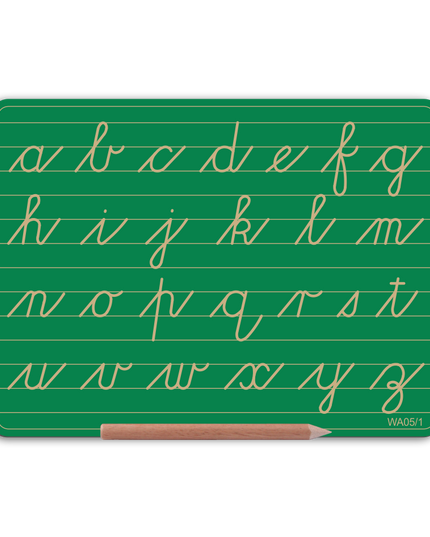 a b c d e f g
h i j k l m
n o p q r s t
u v w x y z
WA05/1